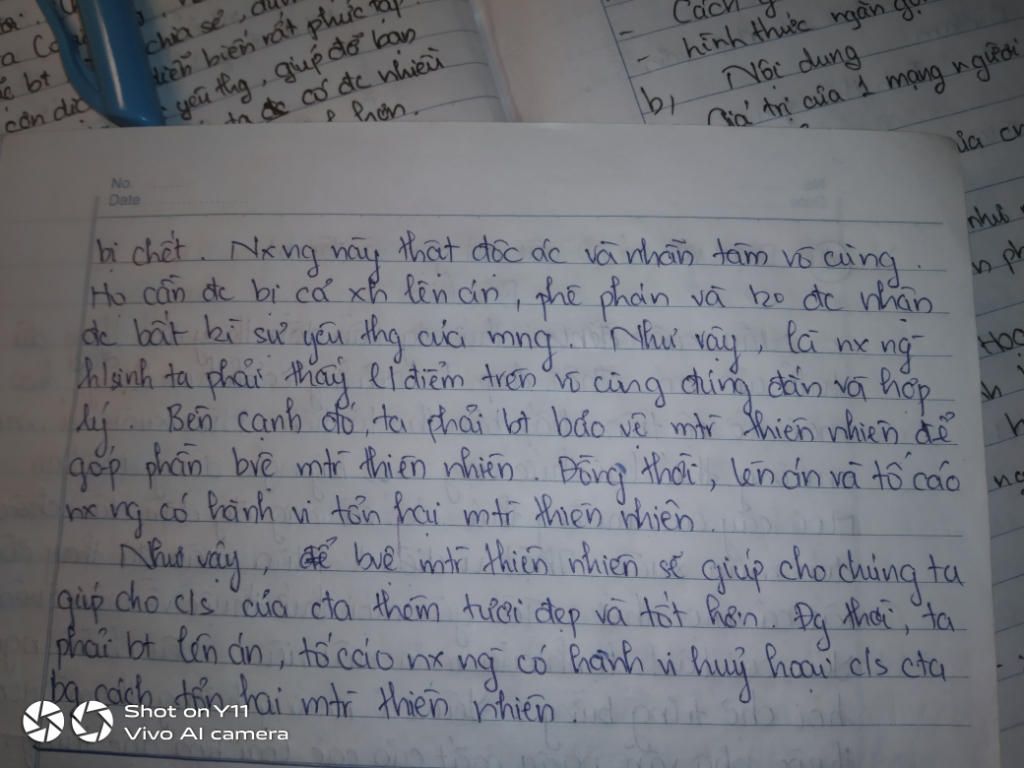 chia sẻ,
biến rất phức tạp
yêu thg, giúp đỡ bạn
ta có đc nhiều
hơn.
Cách
- hình thức ngắn gọ
b, Nội dung
Giá trị của 1 mạng người
No.
Date
bị chết. Nx ng này thật độc ác và nhẫn tâm vô cùng.
Họ cần đc bị cả xh lên án, phê phán và ko đc nhận
đc bất kì sự yêu thg của mng. Như vậy, là nx ng
h/sinh ta phải thấy q/điểm trên vô cùng đúng đắn và hợp
lý. Bên cạnh đó, ta phải bt bảo vệ mtr thiên nhiên để
góp phần bvệ mtr thiên nhiên. Đồng thời, lên án và tố cáo
nx ng có hành vi tổn hại mtr thiên nhiên
Như vậy, để bvệ mtr thiên nhiên sẽ giúp cho chúng ta
giúp cho c/s của cta thêm tươi đẹp và tốt hơn. Đg thời, ta
phải bt lên án, tố cáo nx ng có hành vi huỷ hoại c/s cta
bg cách tổn hại mtr thiên nhiên.
Shot on Y11
Vivo AI camera